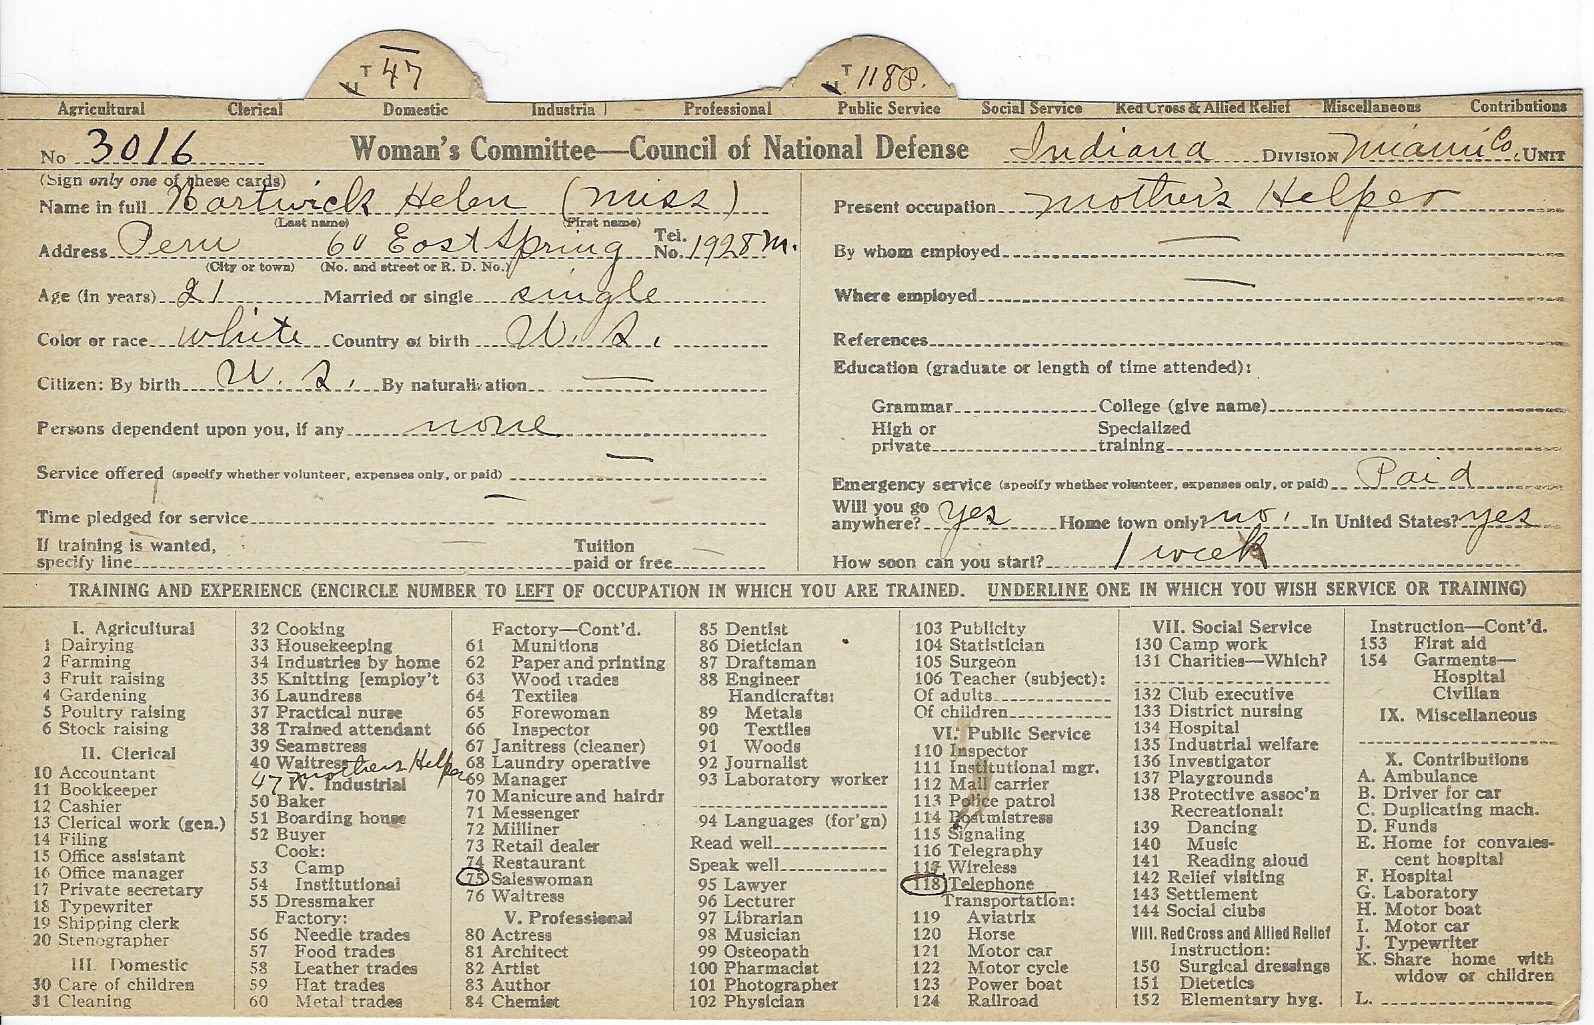 T 47
T 118P.
Agricultural Clerical Domestic Industrial Professional Public Service Social Service Red Cross & Allied Relief Miscellaneous Contributions
No 3016 Woman's Committee—Council of National Defense Indiana DIVISION Miami Co. UNIT
(Sign only one of these cards)
Name in full Hartwick Helen (Miss)
(Last name) (First name)
Address Peru 60 East Spring Tel. No. 1928 M.
(City or town) (No. and street or R. D. No.)
Age (in years) 21 Married or single single
Color or race white Country of birth U. S.
Citizen: By birth U. S. By naturalization —
Persons dependent upon you, if any none
Service offered (specify whether volunteer, expenses only, or paid) —
Time pledged for service —
If training is wanted, specify line — Tuition paid or free —
Present occupation Mother's Helper
By whom employed —
Where employed —
References
Education (graduate or length of time attended):
Grammar College (give name)
High or private Specialized training
Emergency service (specify whether volunteer, expenses only, or paid) Paid
Will you go anywhere? yes Home town only? no. In United States? yes
How soon can you start? 1 week
TRAINING AND EXPERIENCE (ENCIRCLE NUMBER TO LEFT OF OCCUPATION IN WHICH YOU ARE TRAINED. UNDERLINE ONE IN WHICH YOU WISH SERVICE OR TRAINING)
I. Agricultural
1 Dairying
2 Farming
3 Fruit raising
4 Gardening
5 Poultry raising
6 Stock raising
II. Clerical
10 Accountant
11 Bookkeeper
12 Cashier
13 Clerical work (gen.)
14 Filing
15 Office assistant
16 Office manager
17 Private secretary
18 Typewriter
19 Shipping clerk
20 Stenographer
III. Domestic
30 Care of children
31 Cleaning
32 Cooking
33 Housekeeping
34 Industries by home
35 Knitting [employ't
36 Laundress
37 Practical nurse
38 Trained attendant
39 Seamstress
40 Waitress
47 Mother's Helper
IV. Industrial
50 Baker
51 Boarding house
52 Buyer
Cook:
53 Camp
54 Institutional
55 Dressmaker
Factory:
56 Needle trades
57 Food trades
58 Leather trades
59 Hat trades
60 Metal trades
Factory—Cont'd.
61 Munitions
62 Paper and printing
63 Wood trades
64 Textiles
65 Forewoman
66 Inspector
67 Janitress (cleaner)
68 Laundry operative
69 Manager
70 Manicure and hairdr
71 Messenger
72 Milliner
73 Retail dealer
74 Restaurant
75 Saleswoman
76 Waitress
V. Professional
80 Actress
81 Architect
82 Artist
83 Author
84 Chemist
85 Dentist
86 Dietician
87 Draftsman
88 Engineer
Handicrafts:
89 Metals
90 Textiles
91 Woods
92 Journalist
93 Laboratory worker
94 Languages (for'gn)
Read well
Speak well
95 Lawyer
96 Lecturer
97 Librarian
98 Musician
99 Osteopath
100 Pharmacist
101 Photographer
102 Physician
103 Publicity
104 Statistician
105 Surgeon
106 Teacher (subject):
Of adults
Of children
VI. Public Service
110 Inspector
111 Institutional mgr.
112 Mail carrier
113 Police patrol
114 Postmistress
115 Signaling
116 Telegraphy
117 Wireless
118 Telephone
Transportation:
119 Aviatrix
120 Horse
121 Motor car
122 Motor cycle
123 Power boat
124 Railroad
VII. Social Service
130 Camp work
131 Charities—Which?
132 Club executive
133 District nursing
134 Hospital
135 Industrial welfare
136 Investigator
137 Playgrounds
138 Protective assoc'n
Recreational:
139 Dancing
140 Music
141 Reading aloud
142 Relief visiting
143 Settlement
144 Social clubs
VIII. Red Cross and Allied Relief
Instruction:
150 Surgical dressings
151 Dietetics
152 Elementary hyg.
Instruction—Cont'd.
153 First aid
154 Garments—
Hospital
Civilian
IX. Miscellaneous
X. Contributions
A. Ambulance
B. Driver for car
C. Duplicating mach.
D. Funds
E. Home for convales-
cent hospital
F. Hospital
G. Laboratory
H. Motor boat
I. Motor car
J. Typewriter
K. Share home with
widow or children
L.